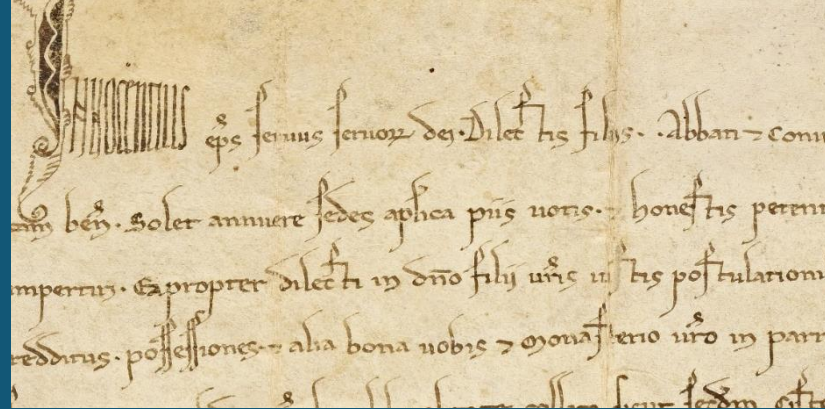 Innocentius ep̄s seruus seruoꝝ dei. Dilectis filiis. Abbati ⁊
ben̄. Solet annuere sedes aplica piis uotis. ⁊ honestis
impertiri. Eapropter dilecti in dn̄o filii ur̄is iustis
redditus. possessiones ⁊ alia bona uobis ⁊ Monasterio ur̄o in